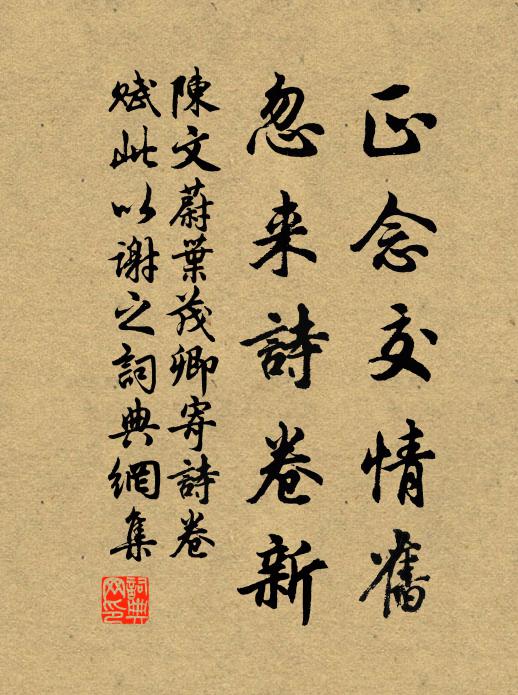 正念交情舊
忽来詩卷新
陳文蔚葉茂卿寄詩卷
賦此以謝之詞典網集
詞典网印